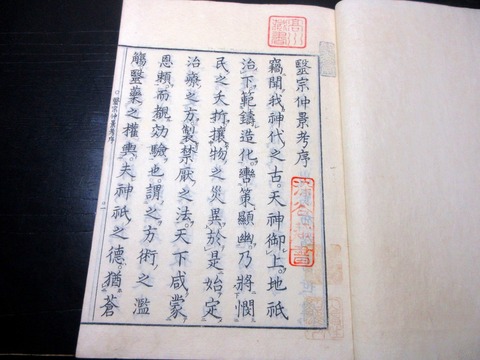 醫宗仲景考序
竊聞我神代之古天神御上地祇
治下範鑄造化轡策顯幽乃將憫
民之夭折攘物之災異於是始定
治療之方製禁厭之法天下咸蒙
恩賴而觀効驗也謂之方術之濫
觴醫藥之權輿夫神祇之德猶蒼
醫宗仲景考序